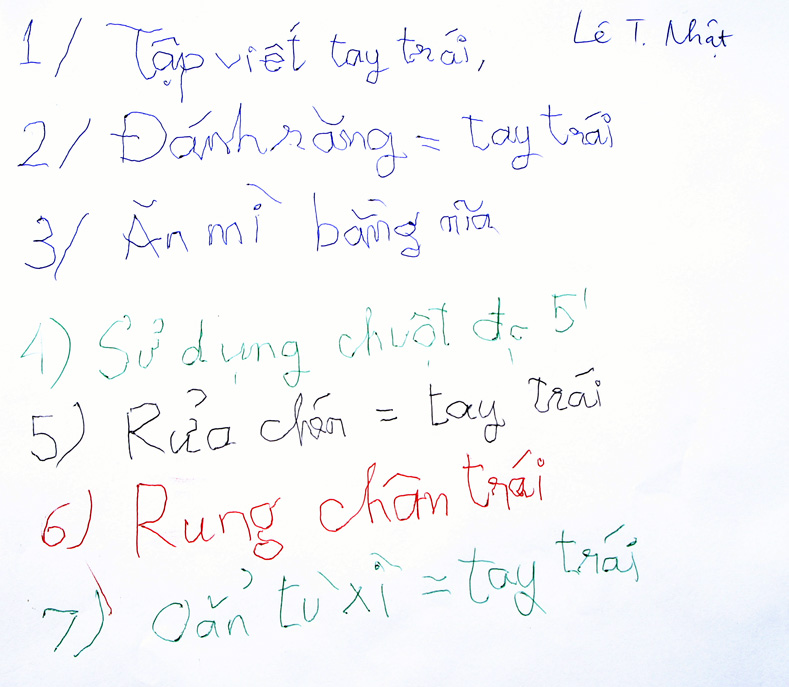 Lê T. Nhật
1/ Tập viết tay trái,
2/ Đánh răng = tay trái
3/ Ăn mì bằng nĩa
4) Sử dụng chuột đc 5'
5) Rửa chén = tay trái
6) Rung chân trái
7) Oẳn tù xì = tay trái